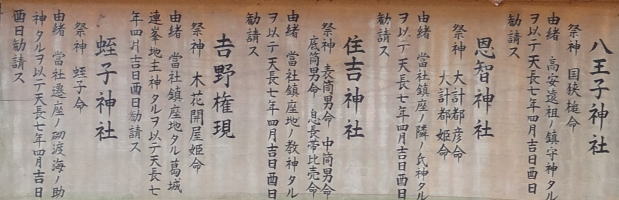 八王子神社
祭神 国狭槌命
由緒 高安遠祖ノ鎮守神タル
ヲ以テ天長七年四月吉日酉日
勧請ス
恩智神社
祭神 大計都彦命
大計都姫命
由緒 當社鎮座ノ隣ノ氏神タル
ヲ以テ天長七年四月吉日酉日
勧請ス
住吉神社
祭神 表筒男命 中筒男命
底筒男命 息長帯比売命
由緒 當社鎮座地ノ教神タル
ヲ以テ天長七年四月吉日酉日
勧請ス
吉野権現
祭神 木花開屋姫命
由緒 當社鎮座地タル葛城
連峯地主神タルヲ以テ天長七
年四月吉日酉日勧請ス
蛭子神社
祭神 蛭子命
由緒 當社遷座ノ砌渡海ノ助
神タルヲ以テ天長七年四月吉日
酉日勧請ス